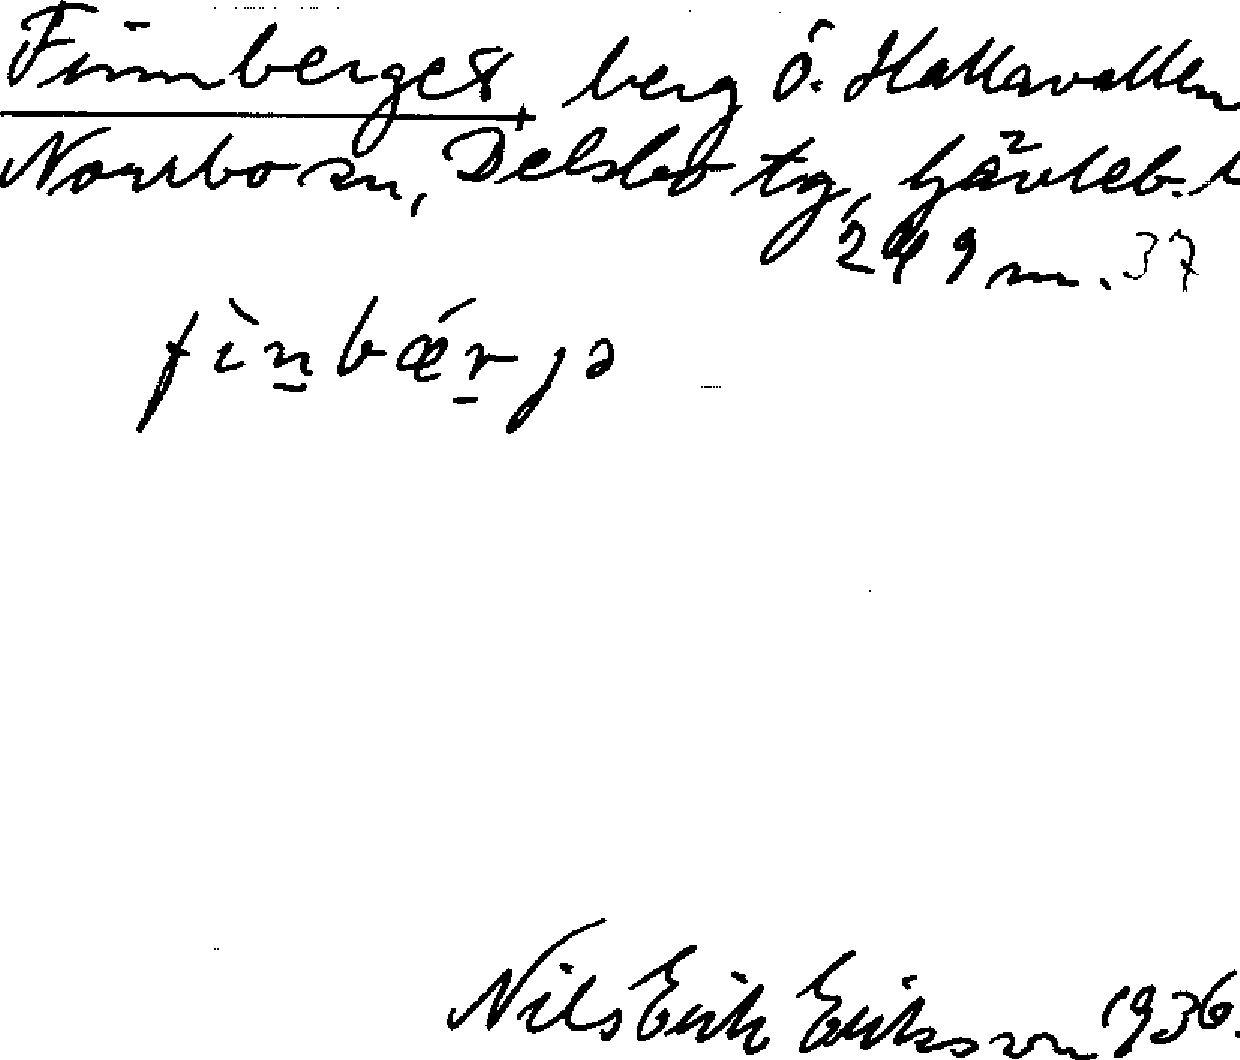 Finnberget, berg Ö. Hallavallen
Norrbo sn, Delsbo tg, Gävleb. l
249 m. 37
fìn̲bǽr̲jə
Nils Erik Eriksson 1936.